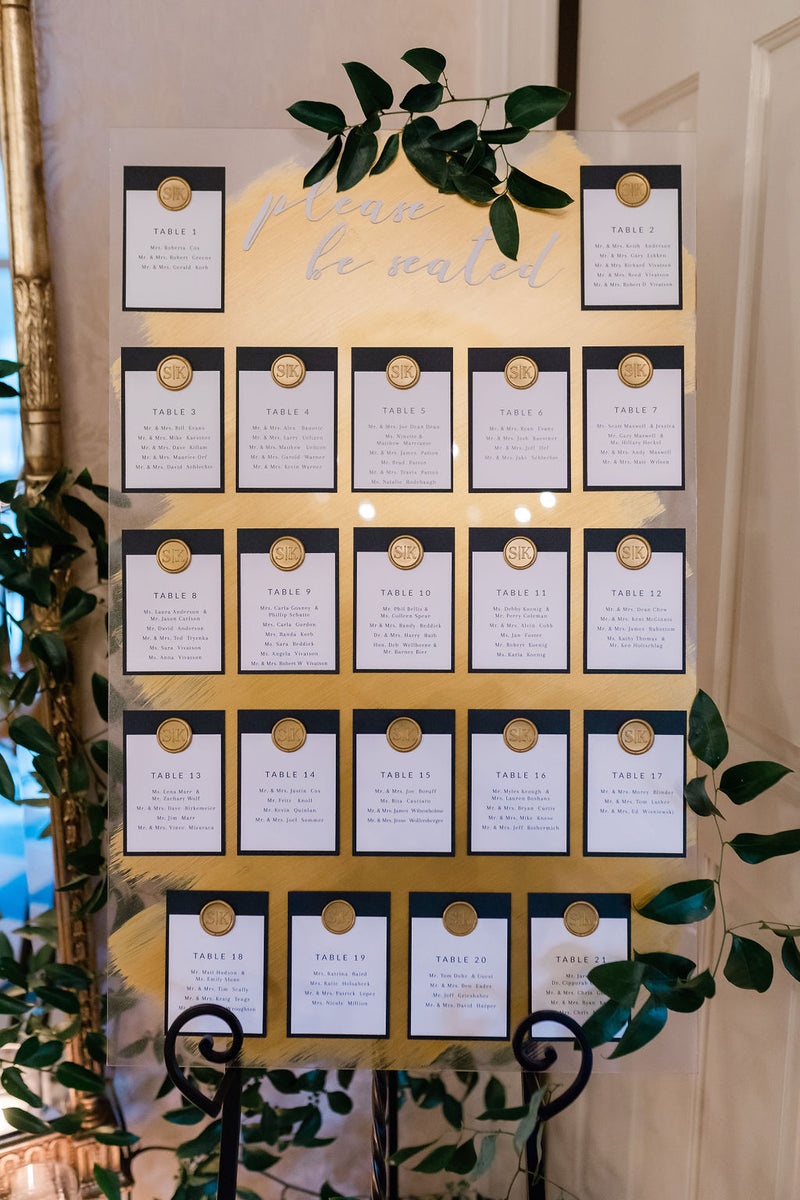 please
be seated
S|K
TABLE 1
Mrs. Roberta Cox
Mr. & Mrs. Robert Greene
Mr. & Mrs. Gerald Korb
S|K
TABLE 2
Mr. & Mrs. Keith Anderson
Mr. & Mrs. Gary Lykken
Mr. & Mrs. Richard Vivatson
Mr. & Mrs. Reed Vivatson
Mr. & Mrs. Robert D. Vivatson
S|K
TABLE 3
Mr. & Mrs. Bill Evans
Mr. & Mrs. Mike Kaestner
Mr. & Mrs. Dave Killam
Mr. & Mrs. Maurice Orf
Mr. & Mrs. David Schlechte
S|K
TABLE 4
Mr. & Mrs. Alex
Mr. & Mrs. Larry Uelizen
Mr. & Mrs. Matthew Uelizen
Mr. & Mrs. Garold Warner
Mr. & Mrs. Kevin Warner
S|K
TABLE 5
Mr. & Mrs. Joe Dean Dean
Ms. Ninette &
Matthew
Mr. & Mrs. James Patton
Mr. Brad Patton
Mr. & Mrs. Travis Patton
Ms. Natalie Rodebaugh
S|K
TABLE 6
Mr. & Mrs. Ryan Evans
Mr. & Mrs. Josh Kaestner
Mr. & Mrs. Jeff Orf
Mr. & Mrs. Jake Schlechte
S|K
TABLE 7
Mr. Scott Maxwell & Jessica
Mr. Gary Maxwell &
Ms. Hillary Heckel
Mr. & Mrs. Andy Maxwell
Mr. & Mrs. Matt Wilson
S|K
TABLE 8
Ms. Laura Anderson &
Mr. Jason Carlson
Mr. David Anderson
Mr. & Mrs. Ted Tryenka
Ms. Sara Vivatson
Ms. Anna Vivatson
S|K
TABLE 9
Mrs. Carla Gosney &
Phillip Schutte
Mrs. Carla Gordon
Mrs. Randa Korb
Ms. Sara Reddick
Ms. Angela Vivatson
Mr. & Mrs. Robert W Vivatson
S|K
TABLE 10
Mr. Phil Bellis &
Ms. Colleen Spear
Mr. & Mrs. Randy Reddick
Dr. & Mrs. Harry Ruth
Hon. Deb Wellborne &
Mr. Barney Bier
S|K
TABLE 11
Ms. Debby Koenig &
Mr. Perry Coleman
Mr. & Mrs. Alvin Cobb
Ms. Jan Foster
Mr. Robert Koenig
Ms. Karla Koenig
S|K
TABLE 12
Mr. & Mrs. Dean Chew
Mr. & Mrs. Kent McGinnis
Mr. & Mrs. James Ruhstom
Ms. Kathy Thomas &
Mr. Ken Holtschlag
S|K
TABLE 13
Ms. Lena Marr &
Mr. Zachary Wolf
Mr. & Mrs. Dave Nirkemeier
Mr. Jim Marr
Mr. & Mrs. Vince Mizuraca
S|K
TABLE 14
Mr. & Mrs. Justin Cox
Mr. Fritz Knoll
Mr. Kevin Quinlan
Mr. & Mrs. Joel Sommer
S|K
TABLE 15
Mr. & Mrs. Joe Boruff
Ms. Rita Casciaro
Mr. & Mrs. James Wilsonholme
Mr. & Mrs. Jesse Wolfersberger
S|K
TABLE 16
Mr. Myles Keough &
Mrs. Lauren Boshans
Mr. & Mrs. Bryan Curtis
Mr. & Mrs. Mike Knese
Mr. & Mrs. Jeff Rothermich
S|K
TABLE 17
Mr. & Mrs. Morey Blinder
Mr. & Mrs. Tom Luther
Mr. & Mrs. Ed Wisniewski
S|K
TABLE 18
Mr. Matt Hudson &
Ms. Emily Muno
Mr. & Mrs. Tim Scally
Mr. & Mrs. Kraig Teags
S|K
TABLE 19
Mrs. Katrina Baird
Mrs. Katie Holsabeck
Mr. & Mrs. Patrick Lopez
Mrs. Nicole Million
S|K
TABLE 20
Mr. Tom Duke & Guest
Mr. & Mrs. Ben Eades
Mr. Jeff Grieshaber
Mr. & Mrs. David Harper
S|K
TABLE 21
Mr.
Dr.
Mr. & Mrs. Chris
Mr. & Mrs. Ryan
Mr. & Mrs.